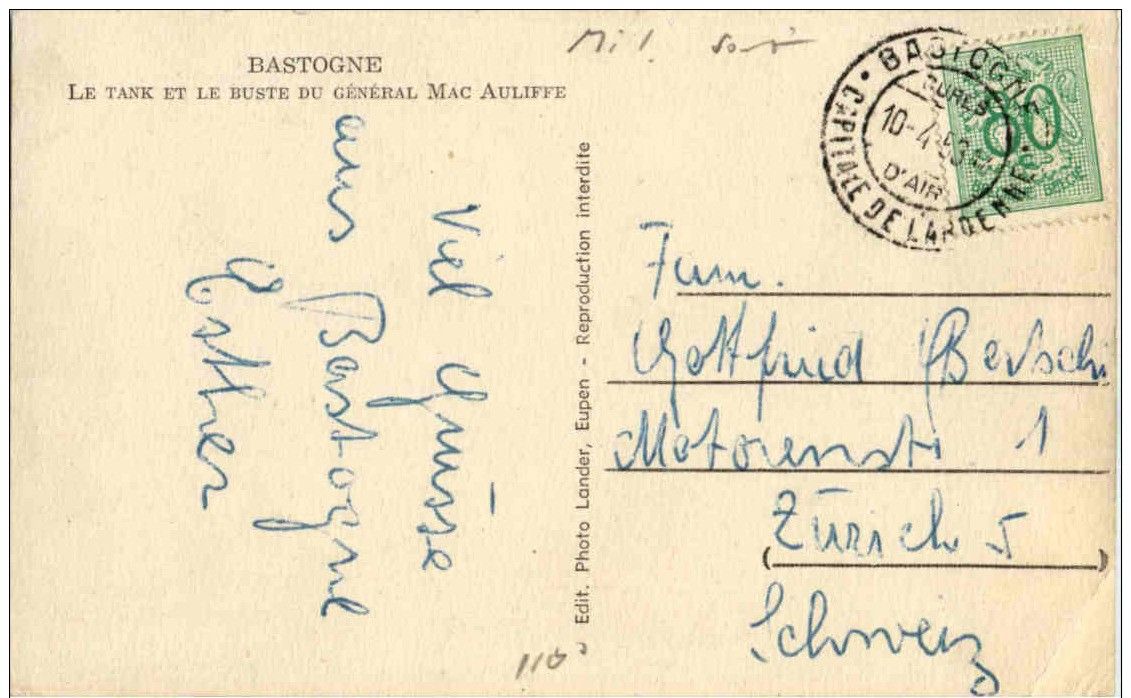 BASTOGNE
LE TANK ET LE BUSTE DU GÉNÉRAL MAC AULIFFE
Viel Grüsse
aus Bastogne
Esther
Edit. Photo Lander, Eupen - Reproduction interdite
BASTOGNE
CAPITALE DE L'ARDENNE
CURES
10-4-53
D'AIR
80
BELGIE
Fam.
Gottfried Bertschi
Motorenstr 1
Zürich 5
Schweiz
110